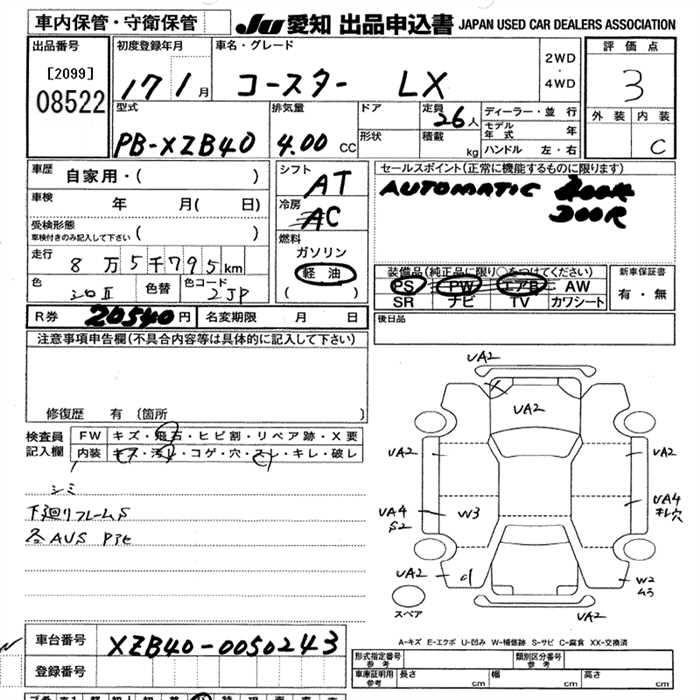 車内保管・守衛保管
JU 愛知 出品申込書 JAPAN USED CAR DEALERS ASSOCIATION
出品番号
[2099]
08522
初度登録年月
17 1月
車名・グレード
コースター LX
2WD
・
4WD
評価点
3
外装 内装
C
型式
PB-XZB40
排気量
4.00 CC
ドア
形状
定員 26人
積載 kg
ディーラー・並行
モデル年式 年
ハンドル 左・右
車歴 自家用・( )
車検 年 月( 日)
受検形態
車検付きのみ記入して下さい ( )
走行 8万5千795km
色 シロII 色替 色コード 2JP
シフト AT
冷房 AC
燃料
ガソリン
軽油
( )
セールスポイント(正常に機能するものに限ります)
AUTOMATIC
DOOR
装備品(純正品に限り○をつけてください)
PS PW エアB AW
SR ナビ TV カワシート
新車保証書
有・無
後日品
R券 20540円 名変期限 月 日
注意事項申告欄(不具合内容等は具体的に記入して下さい)
修復歴 有 〔箇所 〕
検査員
記入欄
FW キズ・飛石・ヒビ割・リペア跡・X要
内装 キズ・汚れ・コゲ・穴・スレ・キレ・破レ
シミ
下廻りフレームS
各AUS
UA2
UA2
UA2
UA2
UA4
S2
W3
UA4
キレ穴
UA2
W2
UA2
スペア
A-キズ E-エクボ U-凹み W-補修跡 S-サビ C-腐食 XX-交換済
車台番号 XZB40-0050243
登録番号
形式指定番号
参考
類別区分番号
参考
車庫証明用
参考
長さ cm 幅 cm 高さ cm